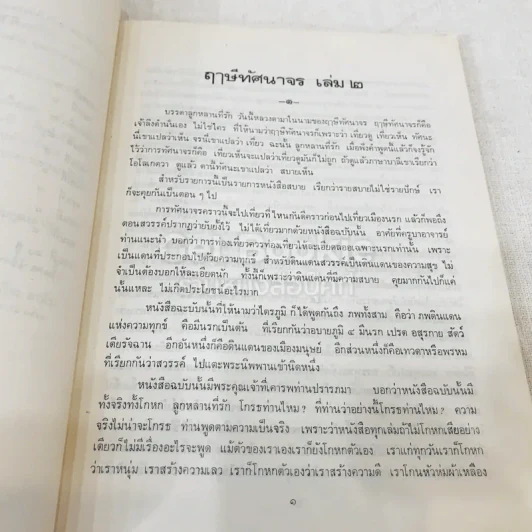 ฤๅษีทัศนาจร เล่ม ๒
บรรดาลูกหลานที่รัก วันนี้หลวงตามาในนามของฤๅษีทัศนาจร ฤๅษีทัศนาจรก็คือ
เจ้าลิงดำนั่นเอง ไม่ใช่ใคร ที่ให้นามว่าฤๅษีทัศนาจรก็เพราะว่า เที่ยวดู เที่ยวเห็น ทัศนะ
นี่เขาแปลว่าเห็น จรนี่เขาแปลว่า เที่ยว ฉะนั้น ลูกหลานที่รัก เมื่อฟังคำพูดนี้แล้วก็จงรู้จัก
ไว้ว่าการทัศนาจรก็คือ เที่ยวเห็นจะแปลว่าเที่ยวดูมันก็ไม่ถูก ถ้าดูแล้วภาษาบาลีเขาเรียกว่า
โอโลเกตวา ดูแล้ว คำนี้ทัศนะเขาแปลว่า สบายเห็น
สำหรับรายการนี้เป็นรายการหนังสือสบาย เรียกว่ารายสบายไม่ใช่รายปักษ์ เรา
ก็จะคุยกันเป็นตอน ๆ ไป
การทัศนาจรคราวนี้จะไปเที่ยวที่ไหนกันดีคราวก่อนไปเที่ยวเมืองนรก แล้วก็พอถึง
ตอนสวรรค์ปรากฏว่ายับยั้งไว้ ไม่ได้เที่ยวมากด้วยหนังสือฉบับนั้น อาศัยที่ครูบาอาจารย์
ท่านแนะนำ บอกว่าการท่องเที่ยวควรท่องเที่ยวให้ละเอียดลออเฉพาะนรกเท่านั้น เพราะ
เป็นแดนที่ประกอบไปด้วยความทุกข์ สำหรับดินแดนสวรรค์เป็นดินแดนของความสุข ไม่
จำเป็นต้องบอกให้ละเอียดนัก ทั้งนี้ก็เพราะว่าดินแดนที่มีความสบาย คุยมากกันไปก็แค่
นั้นแหละ ไม่เกิดประโยชน์อะไรมาก
หนังสือฉะบับนั้นที่ให้นามว่าไตรภูมิ ก็ได้พูดกันถึง ภพทั้งสาม คือว่า ภพดินแดน
แห่งความทุกข์ คือมีนรกเป็นต้น ที่เรียกกันว่าอบายภูมิ ๔ มีนรก เปรต อสุรกาย สัตว์
เดียรัจฉาน อีกอันหนึ่งก็คือดินแดนของเมืองมนุษย์ อีกส่วนหนึ่งก็คือเทวดาหรือพรหม
ที่เรียกกันว่าสวรรค์ ไปแตะพระนิพพานเข้านิดหนึ่ง
หนังสือฉบับนั้นมีพระคุณเจ้าที่เคารพท่านปรารภมา บอกว่าหนังสือฉบับนั้นมี
ทั้งจริงทั้งโกหก ลูกหลานที่รัก โกรธท่านไหม? ที่ท่านว่าอย่างนี้โกรธท่านไหม? ความ
จริงไม่น่าจะโกรธ ท่านพูดตามความเป็นจริง เพราะว่าหนังสือทุกเล่มถ้าไม่โกหกเสียอย่าง
เดียวก็ไม่มีเรื่องอะไรจะพูด แม้ตัวของเราเองเราก็ยังโกหกตัวเอง เราแก่ทุกวันเราก็โกหก
ว่าเราหนุ่ม เราสร้างความเลว เราก็โกหกตัวเองว่าเราสร้างความดี เราโกนหัวห่มผ้าเหลือง
๑